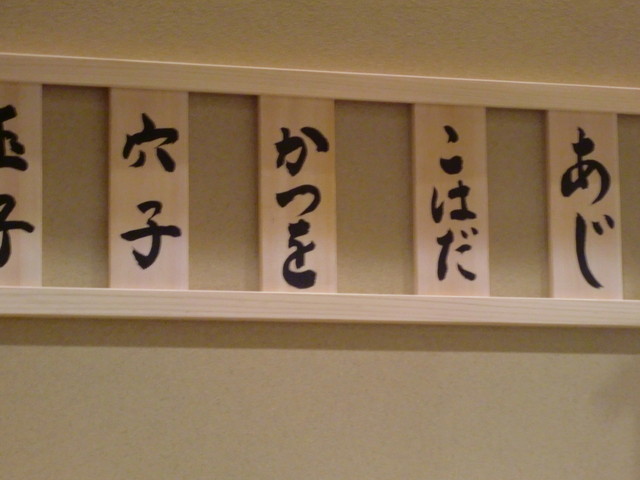 あじ
こはだ
かつを
穴子
玉子